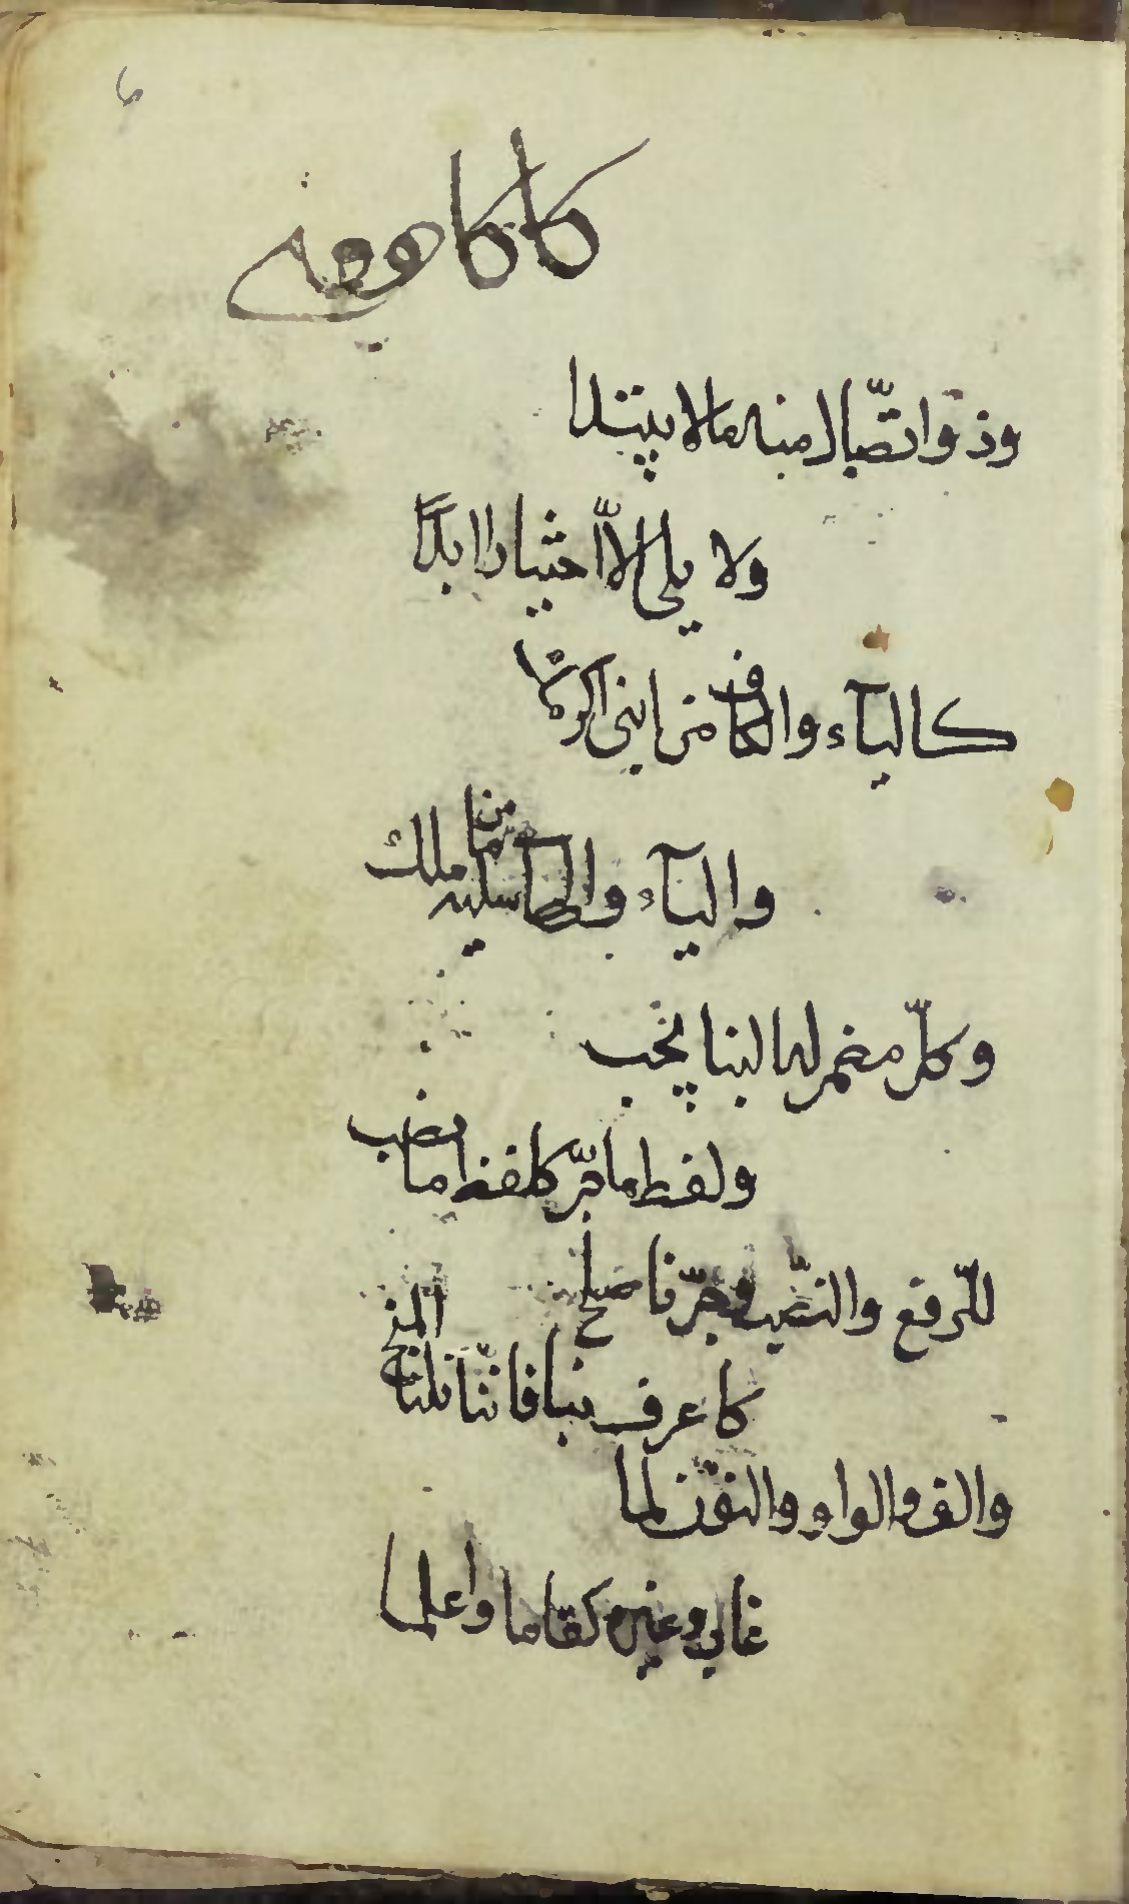 ٦
وذو اتصّال منه ما لا يبتدا
ولا يلي الاّ اختيارا ابدًا
كاليآء والكاف من ابني اكرمك
واليآء والهآ من سليه ما ملك
وكلّ مضمر لها لبنا يجب
ولفظ ما جرّ كلفظ ما نصب
للرّفع والنصّب وجرّ نا صلح
كاعرف بنا فانّنا نلنا المنح
والف والواو والنون لما
غاب وغيره كقاما واعلما